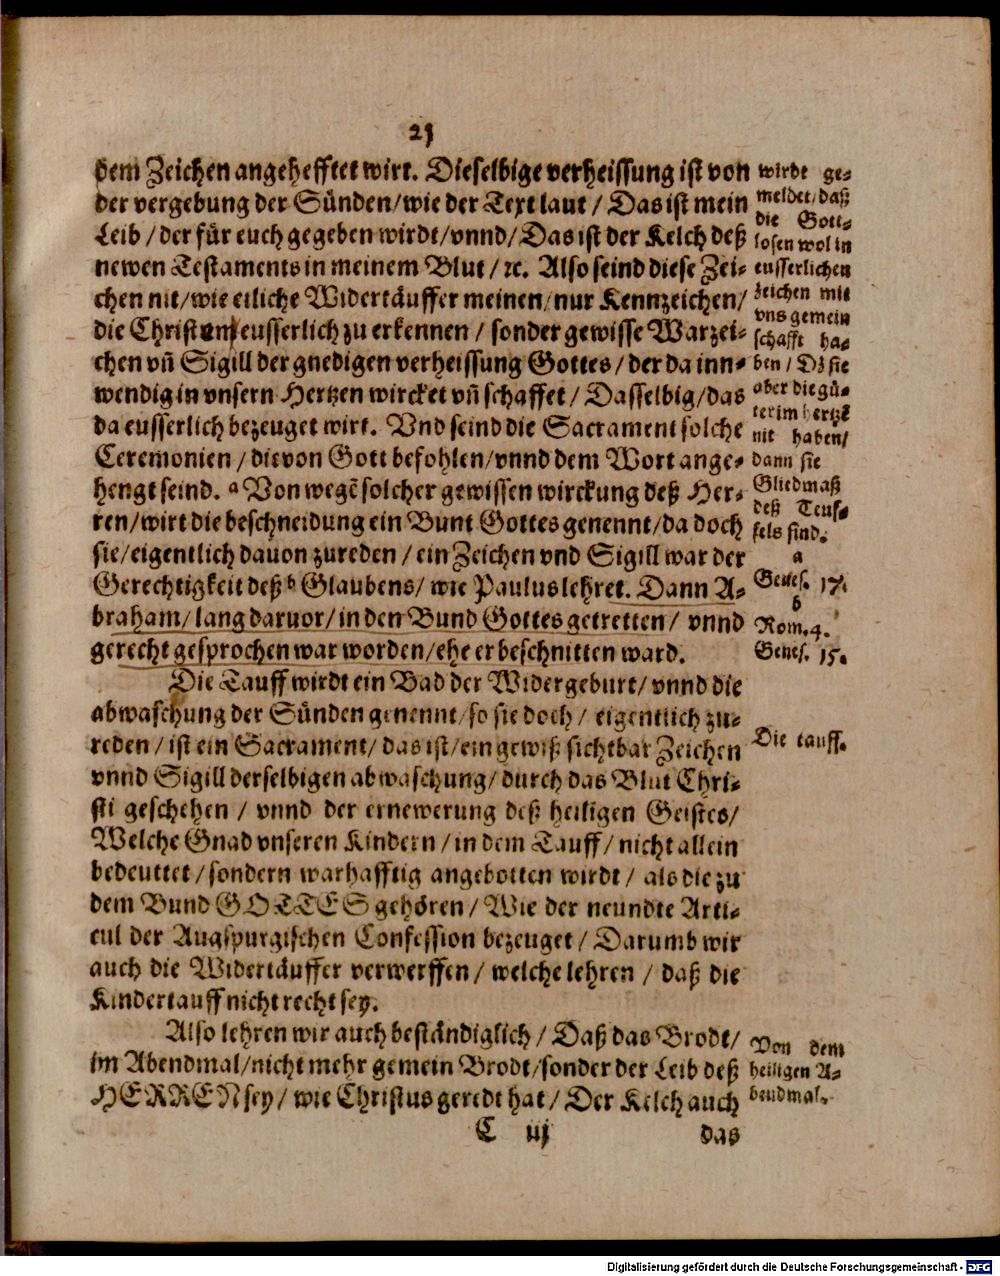 21
dem Zeichen angehefftet wirt. Dieselbige verheissung ist von
der vergebung der Sünden/wie der Text laut / Das ist mein
Leib / der für euch gegeben wirdt/vnnd/Das ist der Kelch deß
newen Testaments in meinem Blut / ꝛc. Also seind diese Zei-
chen nit/wie etliche Widertäuffer meinen/nur Kennzeichen/
die Christen eusserlich zu erkennen / sonder gewisse Warzei-
chen vñ Sigill der gnedigen verheissung Gottes / der da inn-
wendig in vnsern Hertzen wircket vñ schaffet / Dasselbig/das
da eusserlich bezeuget wirt. Vnd seind die Sacrament solche
Ceremonien / die von Gott befohlen/vnnd dem Wort ange-
hengt seind. a Von wegẽ solcher gewissen wirckung deß Her-
ren/wirt die beschneidung ein Bunt Gottes genennt/da doch
sie/eigentlich dauon zureden / ein Zeichen vnd Sigill war der
Gerechtigkeit deß b Glaubens/ wie Paulus lehret. Dann A-
braham/ lang daruor/in den Bund Gottes getretten / vnnd
gerecht gesprochen war worden/ehe er beschnitten ward.
Die Tauff wirdt ein Bad der Widergeburt/ vnnd die
abwaschung der Sünden genennt/so sie doch / eigentlich zu-
reden / ist ein Sacrament/ das ist/ein gewiß sichtbar Zeichen
vnnd Sigill derselbigen abwaschung/ durch das Blut Chri-
sti geschehen / vnnd der ernewerung deß heiligen Geistes/
Welche Gnad vnseren Kindern / in dem Tauff / nicht allein
bedeuttet / sondern warhafftig angebotten wirdt / als die zu
dem Bund GOTTES gehören / Wie der neundte Arti-
cul der Augspurgischen Confession bezeuget / Darumb wir
auch die Widertäuffer verwerffen / welche lehren / daß die
Kindertauff nicht recht sey.
Also lehren wir auch beständiglich / Daß das Brodt/
im Abendmal/nicht mehr gemein Brodt/sonder der Leib deß
HERREN sey / wie Christus geredt hat / Der Kelch auch
C iij das
wirdt ge-
meldet/daß
die Gott-
losen wol in
eusserlichen
zeichen mit
vns gemein
schafft ha-
ben / Dz sie
aber die gü-
ter im hertzẽ
nit haben/
dann sie
Gliedmaß
deß Teuf-
fels sind.
a
Genes. 17.
b
Rom. 4.
Genes. 15.
Die tauff.
Von dem
heiligen A-
bendmal.
Digitalisierung gefördert durch die Deutsche Forschungsgemeinschaft - DFG